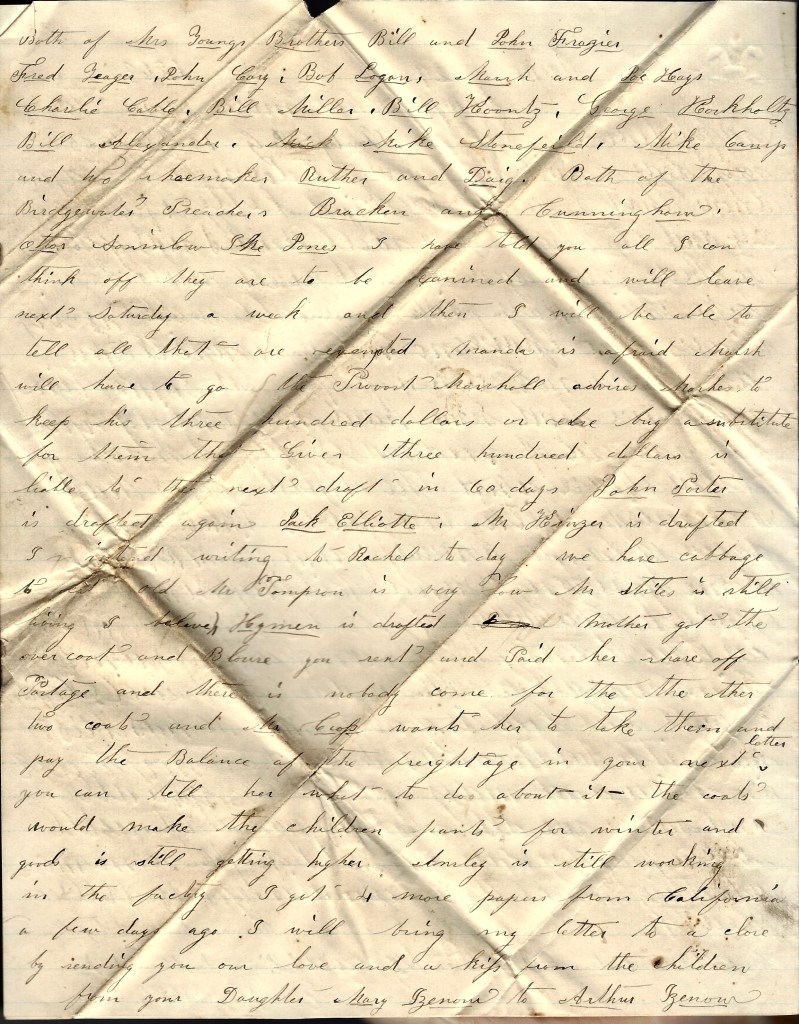 Both of Mrs Youngs Brothers Bill and John Frazier
Fred Yeager, John Cary; Bob Logan, Marsh and Joe Hays
Charlie Cable, Bill Miller, Bill Koontz, George Horkholtz
Bill Alexander. Mike Stonefeild, Mike Camp
and two shoemaker Ruther and Daig. Both of the
Birdgewater Preachers Bracken and Cunningham.
Ike Jones I have told you all I can
think off they are to be exanined and will leave
next Saturday a week and then I will be able to
tell all that are exempted manda is afraid Marsh
will have to go the Provost Marshall advises Marhes to
keep his three hundred dollars or celse buy a substitute
for them that Gives three hundred dollars is
liable to the next draft in 60 days John Porter
is drafted again Jack Elliotte. Mr Hinzer is drafted
I intend writing to Rachel to day we have cabbage
to old Mr Tompson is very low Mr Stites is still
living I beleive) Hymen is drafted Mother got the
over coat and Blouse you sent and Paid her share off
Postage and there is nobody come for the the other
two coats and Mr Cross wants her to take them and
pay the Balance of the freightage in your next letter
you can tell her what to do about it the coats
would make the children pants for winter and
goods is still getting higher. is still working
in the factry I got 4 more papers from California
a few days ago I will bring my letter to a close
by sending you our love and a kiss from the children
from your Daughter Mary Izenour to Arthur Izenour